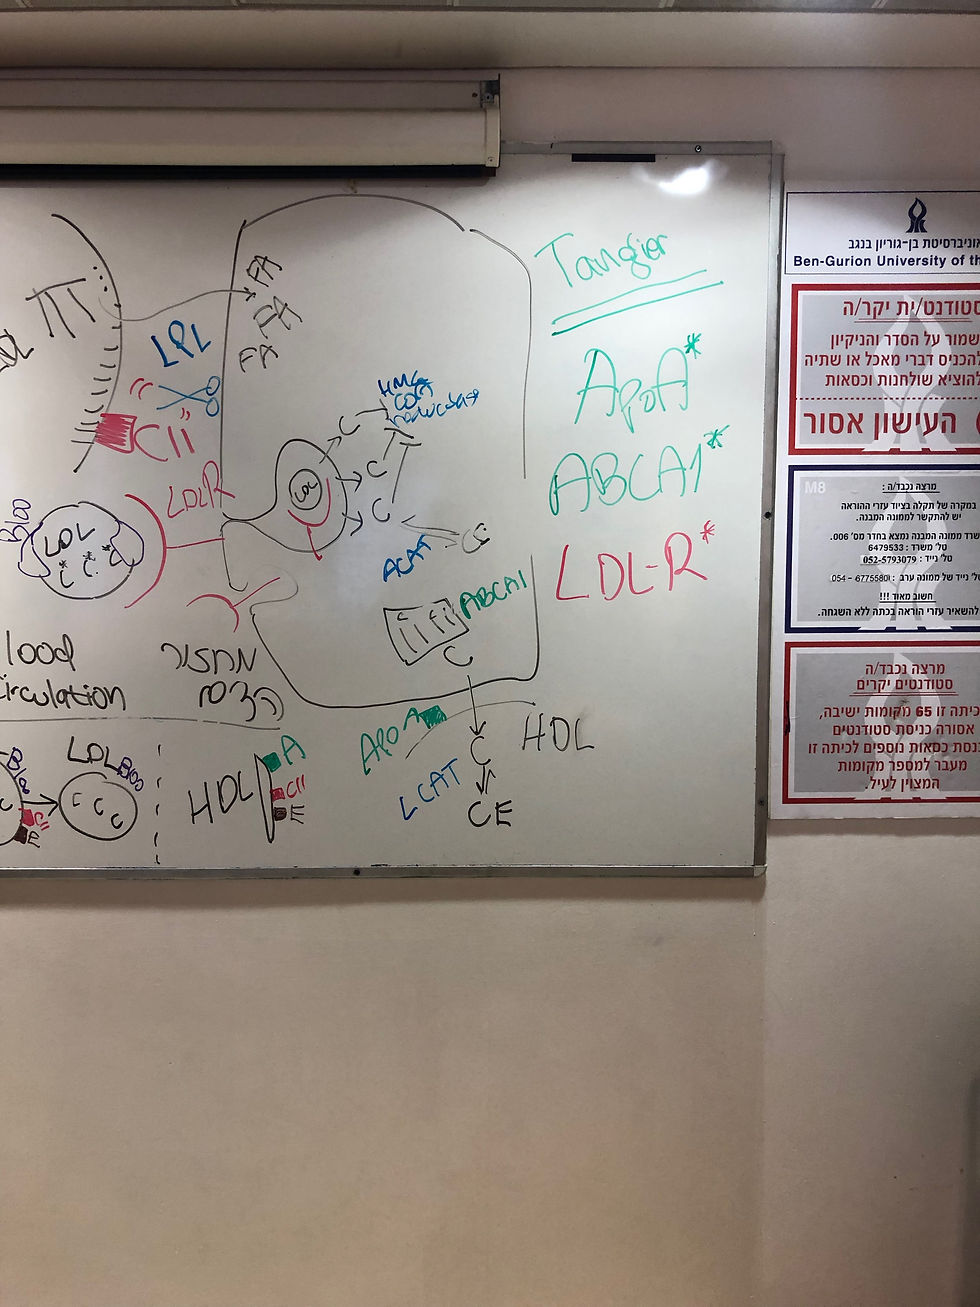 Tangier
ApoA*
ABCA1*
LDL-R*
TTT
LPL
CII
FA
FA
FA
HMG
COA
C
C
C
LDL
LDLR
ACAT
C
B100
LDL
C C C
ABCA1
C
מחזור
הדם
ApoA
HDL
C
LCAT
CE
LDL B100
C C C
C
CII
E
HDL
A
CII
E
אוניברסיטת בן-גוריון בנגב
Ben-Gurion University of th
סטודנט/ית יקר/ה
העישון אסור
M8
מרצה נכבד/ה :
במקרה של תקלה בציוד עזרי ההוראה
יש להתקשר לממונה המבנה.
שרד ממונה המבנה נמצא בחדר מס' 006.
טל' משרד : 6479533
טל' נייד : 052-5793079
טל' נייד של ממונה ערב : 054 - 6775580
חשוב מאוד !!!
להשאיר עזרי הוראה בכתה ללא השגחה.
מרצה נכבד/ה
סטודנטים יקרים
כיתה זו 65 מקומות ישיבה,
אסורה כניסת סטודנטים
נסת כסאות נוספים לכיתה זו
מעבר למספר מקומות
המצוין לעיל.